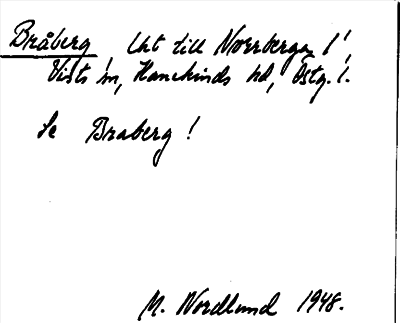 Bråberg Lht till Norrberga 1/1,
Vists sn, Hanekinds hd, Östg. l.
Se Braberg !
M. Nordlund 1948.